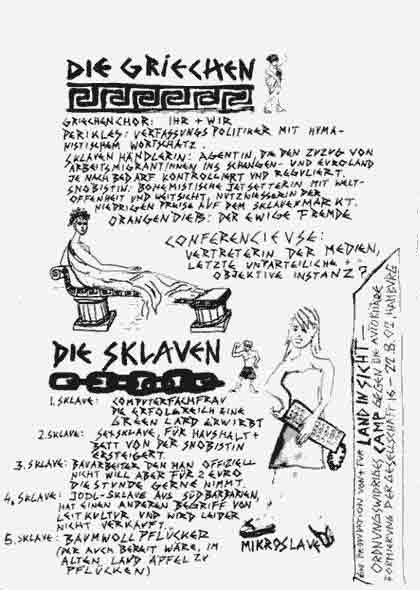 DIE GRIECHEN
GRIECHENCHOR: IHR + WIR
PERIKLES: VERFASSUNGSPOLITIKER MIT HUMA-
NISTISCHEM WORTSCHATZ.
SKLAVENHÄNDLERIN: AGENTIN, DIE DEN ZUZUG VON
ARBEITSMIGRANTINNEN INS SCHENGEN- UND EUROLAND
JE NACH BEDARF KONTROLLIERT UND REGULIERT.
SNOBISTIN: BOHEMISTISCHE JETSETTERIN MIT WELT-
OFFENHEIT UND WEITSICHT, NUTZNIESSERIN DER
NIEDRIGEN PREISE AUF DEM SKLAVENMARKT.
ORANGENDIEB: DER EWIGE FREMDE
CONFERENCIEUSE:
VERTRETERIN DER MEDIEN,
LETZTE UNPARTEILICHE +
OBJEKTIVE INSTANZ?
DIE SKLAVEN
1. SKLAVE: COMPUTERFACHFRAU
DIE ERFOLGREICH EINE
GREEN CARD ERWIRBT
2. SKLAVE: SEXSKLAVE, FÜR HAUSHALT +
BETT VON DER SNOBISTIN
ERSTEIGERT.
3. SKLAVE: BAUARBEITER DEN MAN OFFIZIELL
NICHT WILL ABER FÜR 2 EURO
DIE STUNDE GERNE NIMMT.
4. SKLAVE: JODL-SKLAVE AUS SÜDBARBARIEN,
HAT EINEN ANDEREN BEGRIFF VON
LEITKULTUR UND WIRD LEIDER
NICHT VERKAUFT.
5. SKLAVE: BAUMWOLLPFLÜCKER
(DER AUCH BEREIT WÄRE, IM
ALTEN LAND ÄPFEL ZU
PFLÜCKEN)
MIKROSLAVE
EINE PRODUKTION VON + FÜR LAND IN SICHT –
ORDNUNGSWIDRIGES CAMP GEGEN DIE AUTORITÄRE
FORMIERUNG DER GESELLSCHAFT 16.-22.8.02, HAMBURG